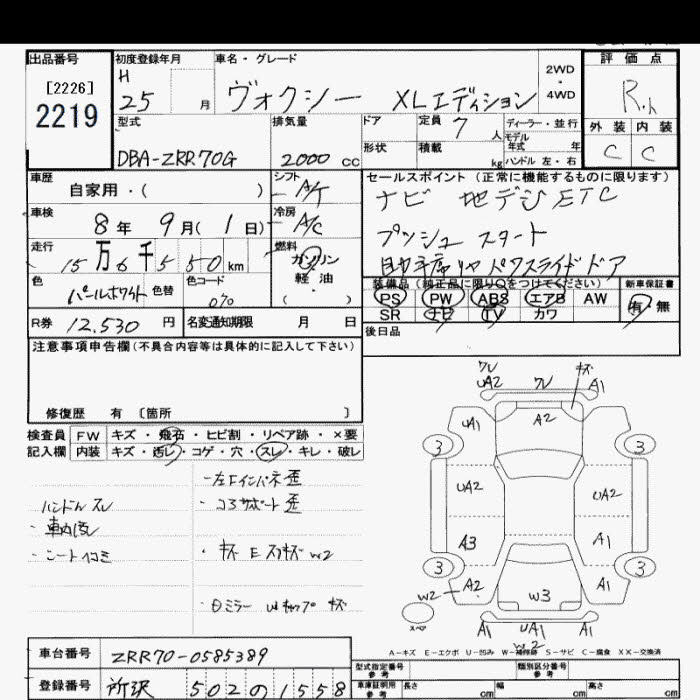 出品番号 初度登録年月 車名・グレード 評価点
[2226] H 2WD
2219 25 月 ヴォクシー XLエディション ・ 4WD R.A
型式 排気量 ドア 定員 7 人 ディーラー・並行 外装 内装
モデル年式 年
DBA-ZRR70G 2000 cc 形状 積載 kg ハンドル 左・右 C C
車歴 シフト セールスポイント (正常に機能するものに限ります)
自家用・( ) A/T ナビ 地デジ ETC
車検 8年 9月(1日) 冷房 A/C プッシュ スタート
走行 15万6千550km 燃料 ガソリン 助手席リヤ パワスライドドア
軽油
( )
色 パールホワイト 色替 色コード 070 装備品 (純正品に限り○をつけてください) 新車保証書
PS PW ABS エアB AW 有・無
SR ナビ TV カワ
R券 12,530 円 名変通知期限 月 日 後日品
注意事項申告欄(不具合内容等は具体的に記入して下さい)
修復歴 有 〔箇所 〕
検査員 FW キズ・飛石・ヒビ割・リペア跡・×要
記入欄 内装 キズ・汚レ・コゲ・穴・スレ・キレ・破レ
-左Fインパネ歪
ハンドル スレ ・コアサポート歪
・車内汚レ
・シートイコミ ・キズ E スリキズ W2
・Dミラー ウキャップ キズ
ワレ キズ
UA2 ワレ A1
UA1 A2
3 3
UA2 UA2
A3 A1
3 3
W2 A2 W3 A1
スペア
A1 UA1 A1
W2
A-キズ E-エクボ U-凹み W-補修跡 S-サビ C-腐食 XX-交換済
車台番号 ZRR70-0585389
型式指定番号 参考 類別区分番号 参考
登録番号 所沢 502 の 1558
車庫証明用 参考 長さ cm 幅 cm 高さ cm